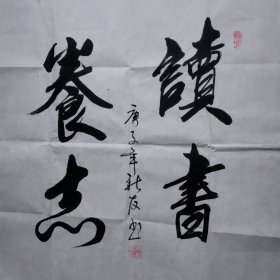 讀書
養志
庚子年秋友书